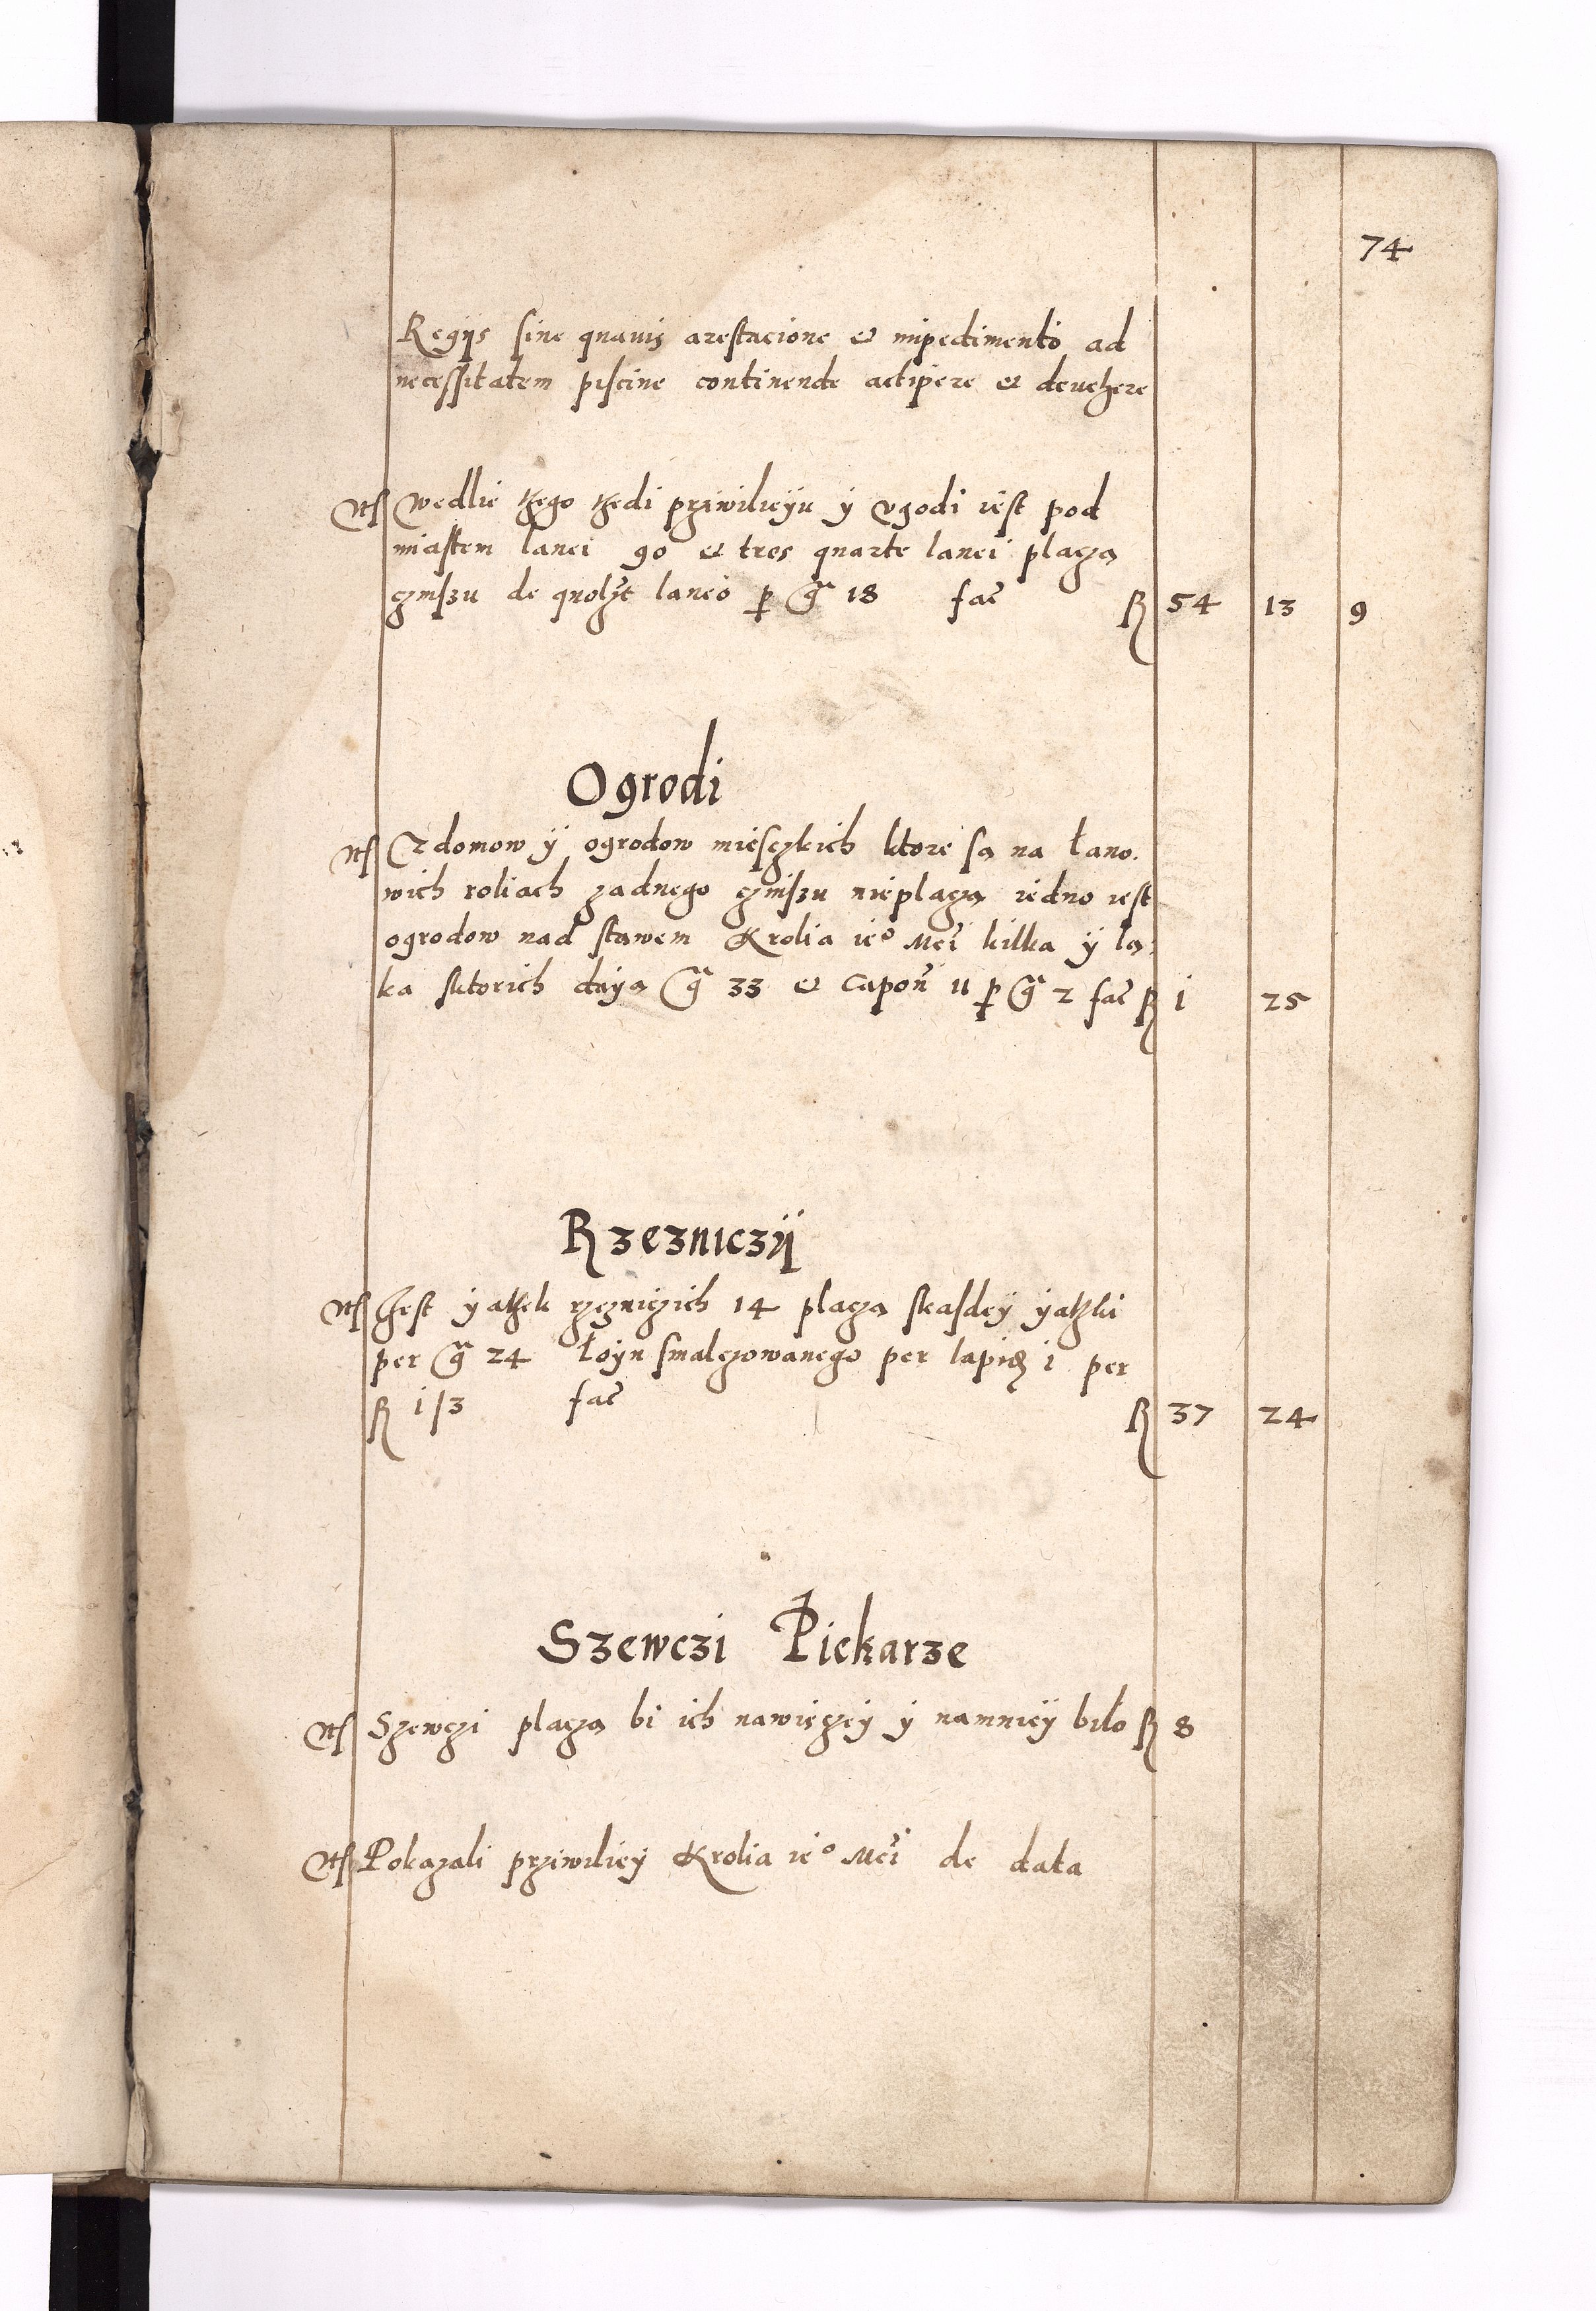 74
Regijs sine quauis arestacione et impedimento ad
necessitatem piscine continende accipere et deuehere
Its Wedlie tzego tzedi prziwilieyu y vgodi iest pod
miastem lanei 90 et tres quarte lanei placza
czinszu de quolzt laneo p g 18 fac R 54 13 9
Ogrodi
Its Z domow ÿ ogrodow miesczkich ktore sa na łano.
wich roliach zadnego czinszu nieplacza iedno iest
ogrodow nad stawem Krolia ieº Mci kilka ÿ la,
ka sktorich daÿa g 33 et Capon 11 p g 2 fac R 1 25
Rzezniczÿ
Its Jest ÿatzek rzezniczich 14 placza skasdeÿ ÿatzki
per g 24 łoÿu smalczowanego per lapid 1 per
R 1/3 fac R 37 24
Szewczi Piekarze
Its Szewczi placza bi ich nawięczeÿ ÿ namnieÿ biło R 8
Its Pokazali prziwilieÿ Krolia ieº Mci de data